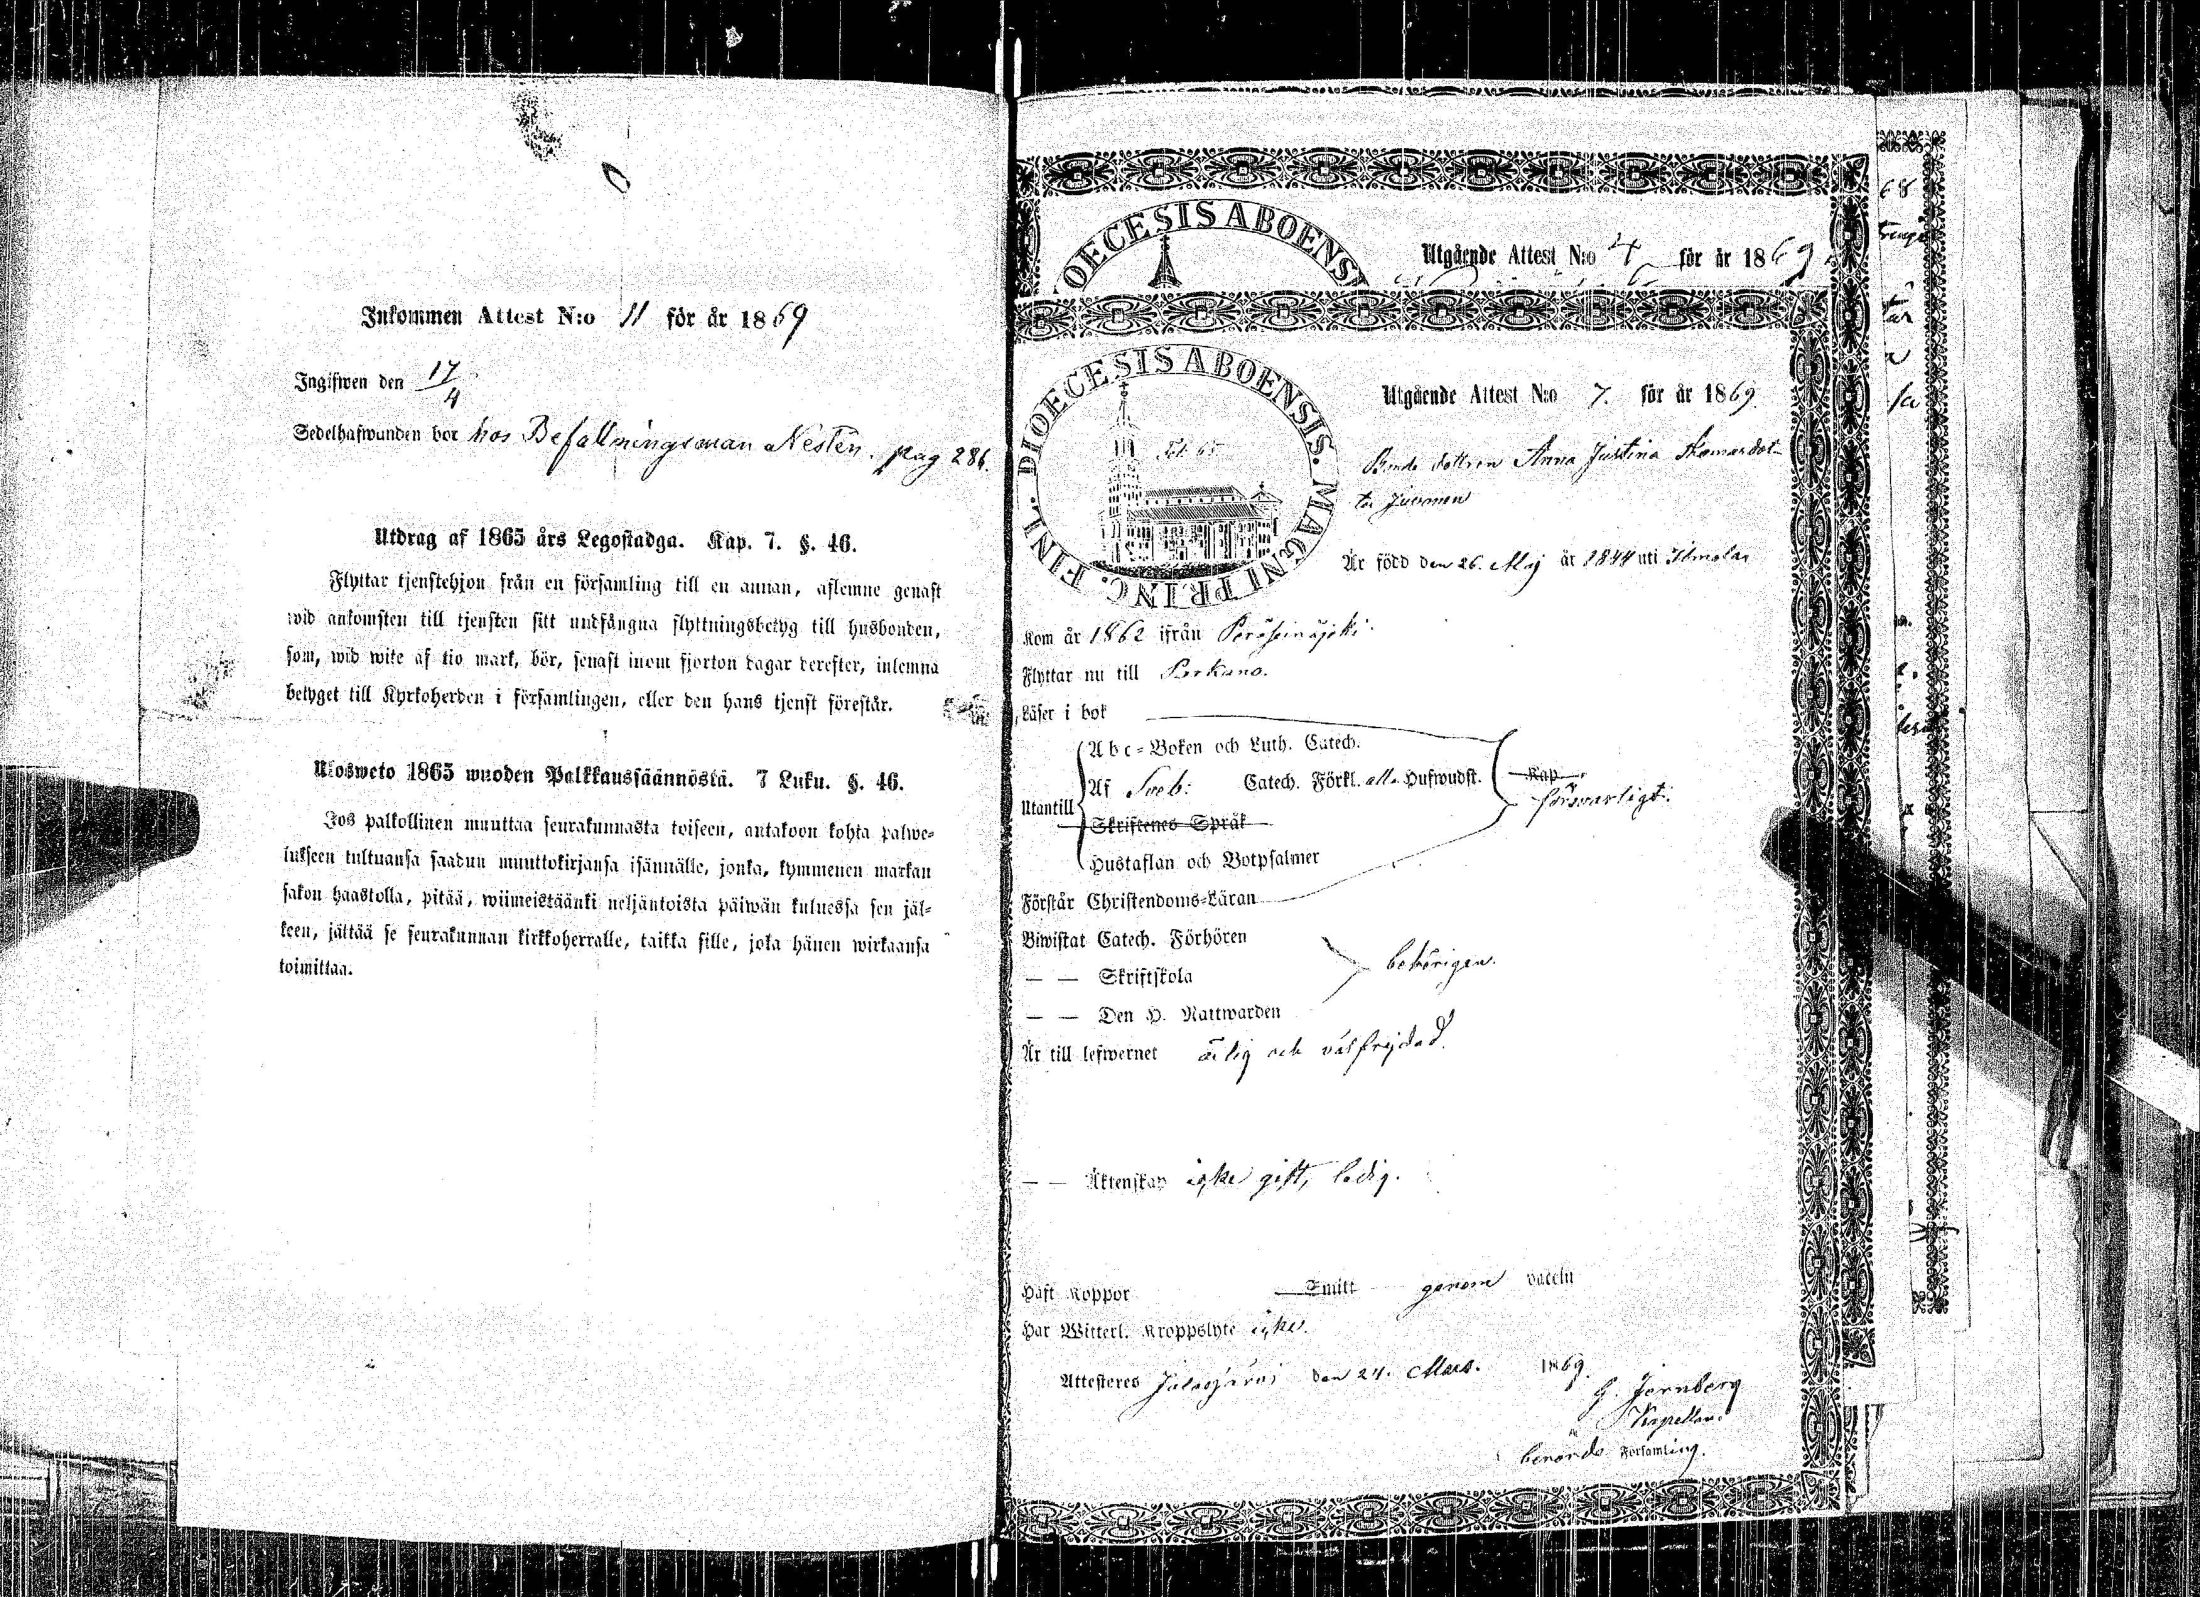 Inkommen Attest N:o 11 för år 1869
Ingifwen den 17/4
Sedelhafwunden bor hos Befallningsman Nestén. pag 286.
Utdrag af 1865 års Legostadga. Kap. 7. §. 46.
Flyttar tjenstehjon från en församling till en annan, aflemne genast
wid ankomsten till tjensten sitt undfångna flyttningsbetyg till husbonden,
som, wid wite af tio mark, bör, senast inom fjorton dagar derefter, inlemna
betyget till Kyrkoherden i församlingen, eller den hans tjenst förestår.
Ulosweto 1865 wuoden Palkkaussäännöstä. 7 Luku. §. 46.
Jos palkollinen muuttaa seurakunnasta toiseen, antakoon kohta palwe-
lukseen tultuansa saadun muuttokirjansa isännälle, jonka, kymmenen markan
sakon haastolla, pitää, wiimeistäänki neljäntoista päiwän kuluessa sen jäl-
keen, jättää se seurakunnan kirkkoherralle, taikka sille, joka hänen wirkaansa
toimittaa.
OECESIS ABOENS
Utgående Attest N:o 4 för år 1869
DIOECESIS ABOENSIS. MAGNI PRINC. FINL.
Utgående Attest N:o 7. för år 1869.
Fol. 65
Bonde dottren Anna Justina
Är född den 26. Maj år 1844 uti Ilmola
Kom år 1862 ifrån Peräseinäjoki.
Flyttar nu till Parkano.
Läser i bok
Abc-Boken och Luth. Catech.
Utantill Af Sveb: Catech. Förkl. alla Hufwudst.
Kap.
försvarligt.
Skriftenes Språk
Hustaflan och Botpsalmer
Förstår Christendoms-Läran
Biwistat Catech. Förhören
— — Skriftskola behörigen.
— — Den H. Nattwarden
Är till lefwernet ärlig och välfrejdad.
— — Äktenskap icke gift, ledig.
Haft Koppor Smitt genom vaccin
Har Witterl. Kroppslyte icke.
Attesteras Jalasjärvi den 24. Mars. 1869.
G. Jernberg
Kapellan.
berörde Församling.